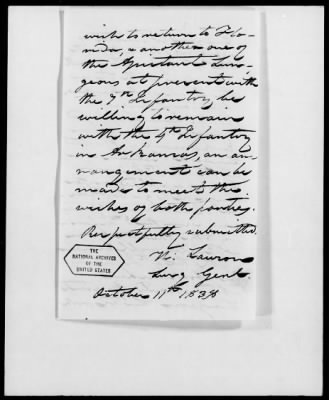 wish to return to Flo-
rida, & another one of
the Assistant Sur-
geons at present with
the 7th Infantry, be
willing to remain
with the 4th Infantry
in Arkansas, an ar-
rangement can be
made to meet the
wishes of both parties.
Respectfully submitted.
Th: Lawson
Surg Genl.
October 11th 1838
THE
NATIONAL ARCHIVES
OF THE
UNITED STATES